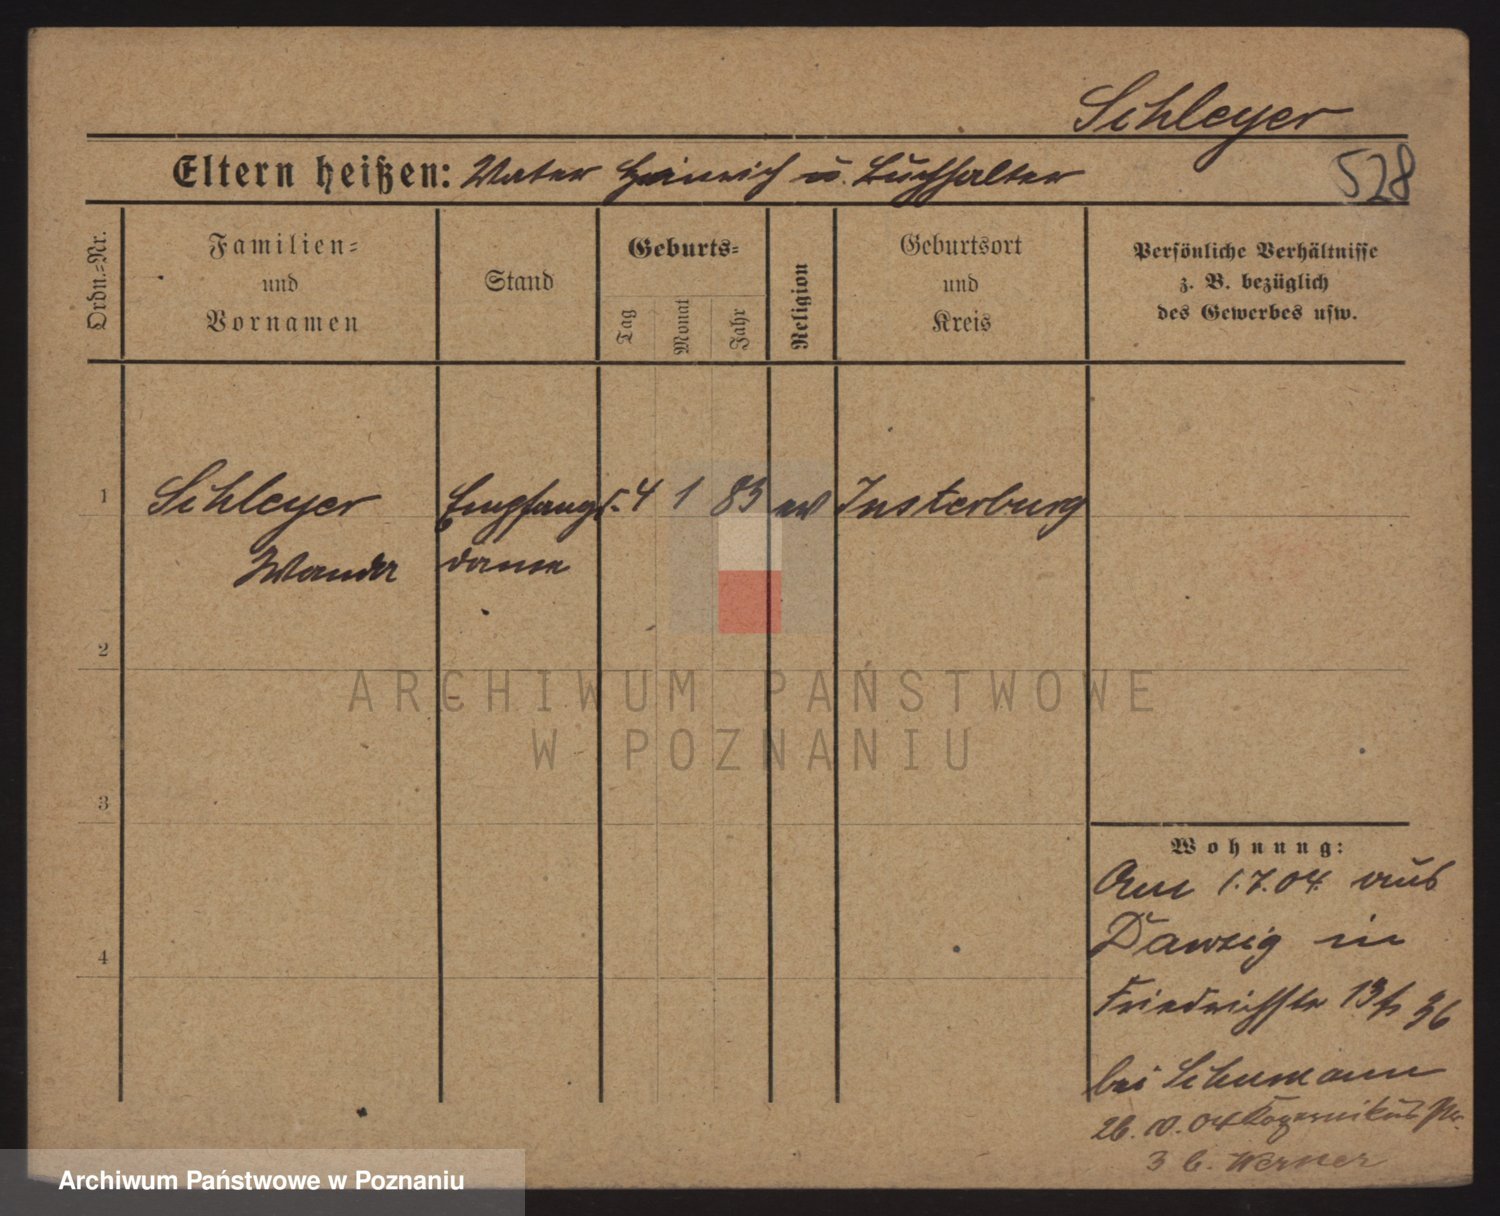 Schleyer
Eltern heißen: Vater Heinrich u. Buchhalter
528
Ordn.=Nr.
Familien=
und
Vornamen
Stand
Geburts=
Tag
Monat
Jahr
Religion
Geburtsort
und
Kreis
Persönliche Verhältnisse
z. B. bezüglich
des Gewerbes usw.
1
Schleyer
Wanda
Empfangs-
dame
4 1 83 ev Insterburg
2
3
4
Wohnung:
Am 1.7.04. aus
Danzig in
Friedrichstr 13
bei Schumann
26. 10. 04 Kopernikus Str.
3 b. Werner
ARCHIWUM PAŃSTWOWE
W POZNANIU
Archiwum Państwowe w Poznaniu